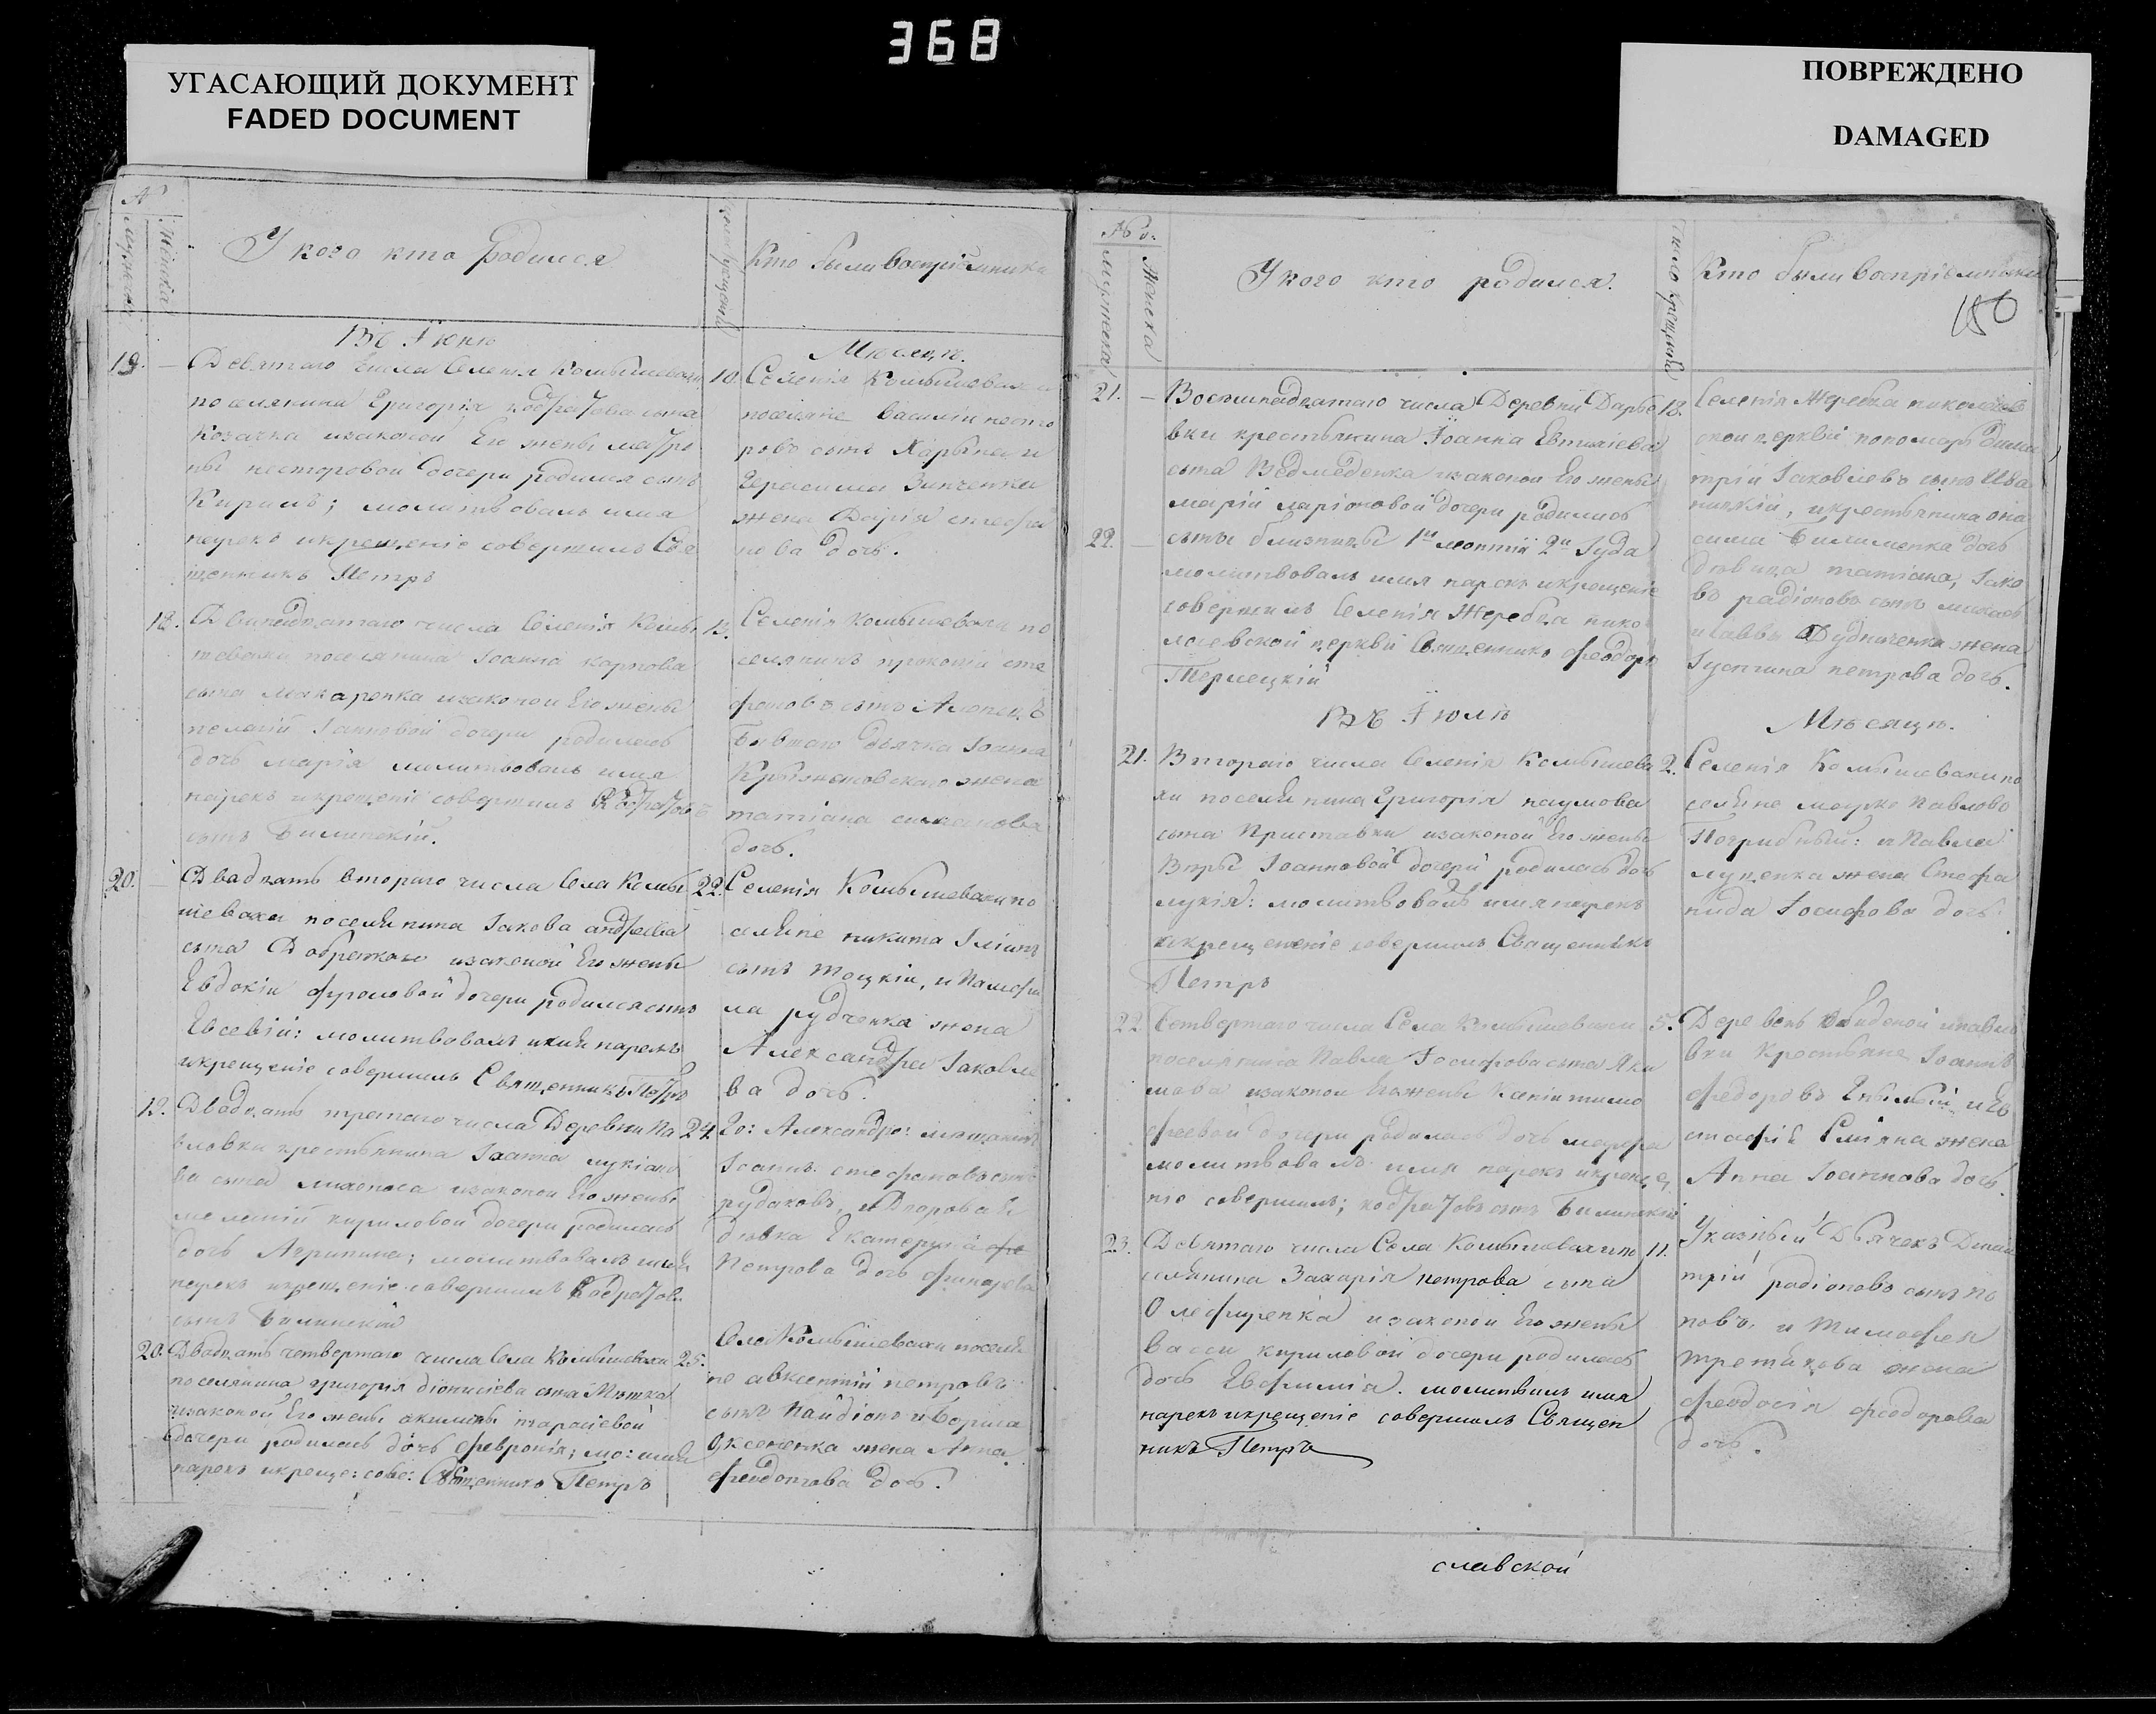 368
УГАСАЮЩИЙ ДОКУМЕНТ
FADED DOCUMENT
ПОВРЕЖДЕНО
DAMAGED
№
мужеска
женска
У кого кто родился
число крещенія
Кто были воспріемники
Въ Іюнѣ
Мѣсяцѣ.
19. — Девятаго числа Селенія Комышевахи
поселянина Григорія кодратова сына
Козачка изаконой Его жены матро
ны несторовой дочери родился сынъ
Кирилъ; молитвовалъ имя
нарекъ икрещеніе совершилъ Свя
щенникъ Петръ
10. Селенія Комышевахи
поселяне василій несто
ровъ сынъ Харына и
Герасима Зинченка
жена Дарія стефа
нова дочь.
18. Двенадцатаго числа Селенія Комы
шевахи поселянина Іоанна карпова
сына макаренка изаконой Его жены
пелагій Іанновой дочери родилась
дочь марія молитвовалъ имя
нарекъ икрещеніе совершилъ Кодратовъ
сынъ Билинскій.
13. Селенія Комышевахи по
селянинъ прокопій сте
фановъ сынъ
Бывшаго дьячка Іоанна
Крыжановскаго жена
татіана
дочь.
20. — Двадцать втораго числа Села Комы
шевахи поселянина Іакова андреева
сына Добрежаю изаконой Его жены
Евдокіи фроловой дочери родился сынъ
Евсевій: молитвовалъ имя нарекъ
икрещеніе совершилъ Священникъ Петръ
22. Селенія Комышевахи по
селяне никита Іліинъ
сынъ тоцкій, и Памфи
ла рудченка жена
Александра Іаковле
ва дочь.
19. Двадцать третяго числа Деревни Па
вловки крестьянина Іоанна лукіано
ва сына изаконой Его жены
меланій кириловой дочери родилась
дочь Агрипина; молитвовалъ имя
нарекъ икрещеніе совершилъ Кодратовъ
сынъ Билинскій
24. Го: Александро: мѣщанинъ
Іоанъ стефановъ сынъ
рудаковъ, и Дворовая
дѣвка Екатерина
Петрова дочь
20. Двадцать четвертаго числа Села Комышевахи
поселянина григорія діонисіева сына Мѣшка
изаконой Его жены акилины тарасіевой
дочери родилась дочь февронія; мо: имя
нарекъ икреще: сове: Священникъ Петръ
25. Села Комышевахи поселя
не авксентій петровъ
сынъ Найдіонъ и Бориса
Оксененка жена Анна
феодотова дочь.
№
мужеска
женска
У кого кто родился.
число крещеній
Кто были воспріемники
180
21. — Восемнадцатаго числа Деревни Дарье
вки крестьянина Іоанна Евтихіева
сына Ведмеденка изаконой Его жены
маріи маріоновой дочери родились
22. — сыны близницы 1й леонтій 2й Іуда
молитвовалъ имя нарекъ икрещеніе
совершилъ Селенія Жеребца нико
лаевской церквй Священникъ феодоръ
Терлецкій
18. Селенія Жеребца николаев
ской церквій пономарь дими
трій Іаковлевъ сынъ Ива
ницкій, икрестьянина они
сима Билименка дочь
дѣвица татіана, Іако
въ радіоновъ сынъ
и саввы Дудниченка жена
Іустина петрова дочь.
Въ Іюлѣ
Мѣсяцѣ.
21. Втораго числа Селенія Комышева
хи поселянина Григорія наумова
сына Приставки изаконой Его жены
Вѣры Іоанновой дочери родилась дочь
лукія: молитвовалъ имя нарекъ
икрещеніе совершилъ Священникъ
Петръ
2. Селенія Комышевахи по
селяне марко Павловъ
Погрибный: и Павла
луценка жена Стефа
нида Іосифова дочь.
22 Четвертаго числа Села Комышевахи
поселянина Павла Іосифова сына Яки
мова изаконой Его жены Ксеніи тимо
феевой дочери родилась дочь
молитвовалъ имя нарекъ икреще
ніе совершилъ; кодратовъ сынъ Билинскій
5. Деревень ипавло
вки Крестьяне Іоаннъ
федоровъ и Ев
стафія жена
Анна Іоаннова дочь.
23. Девятаго числа Села Комышевахи по
селянина Захарія петрова сына
Олефиренка изаконой Его жены
васси кириловой дочери родилась
дочь Евфимія. молитвилъ имя
нарекъ икрещеніе совершилъ Священ
никъ Петръ
11. Указный Дьячекъ Дими
трій радіоновъ сынъ По
повъ, и Тимофея
третякова жена
феодосія феодорова
дочь.
славской